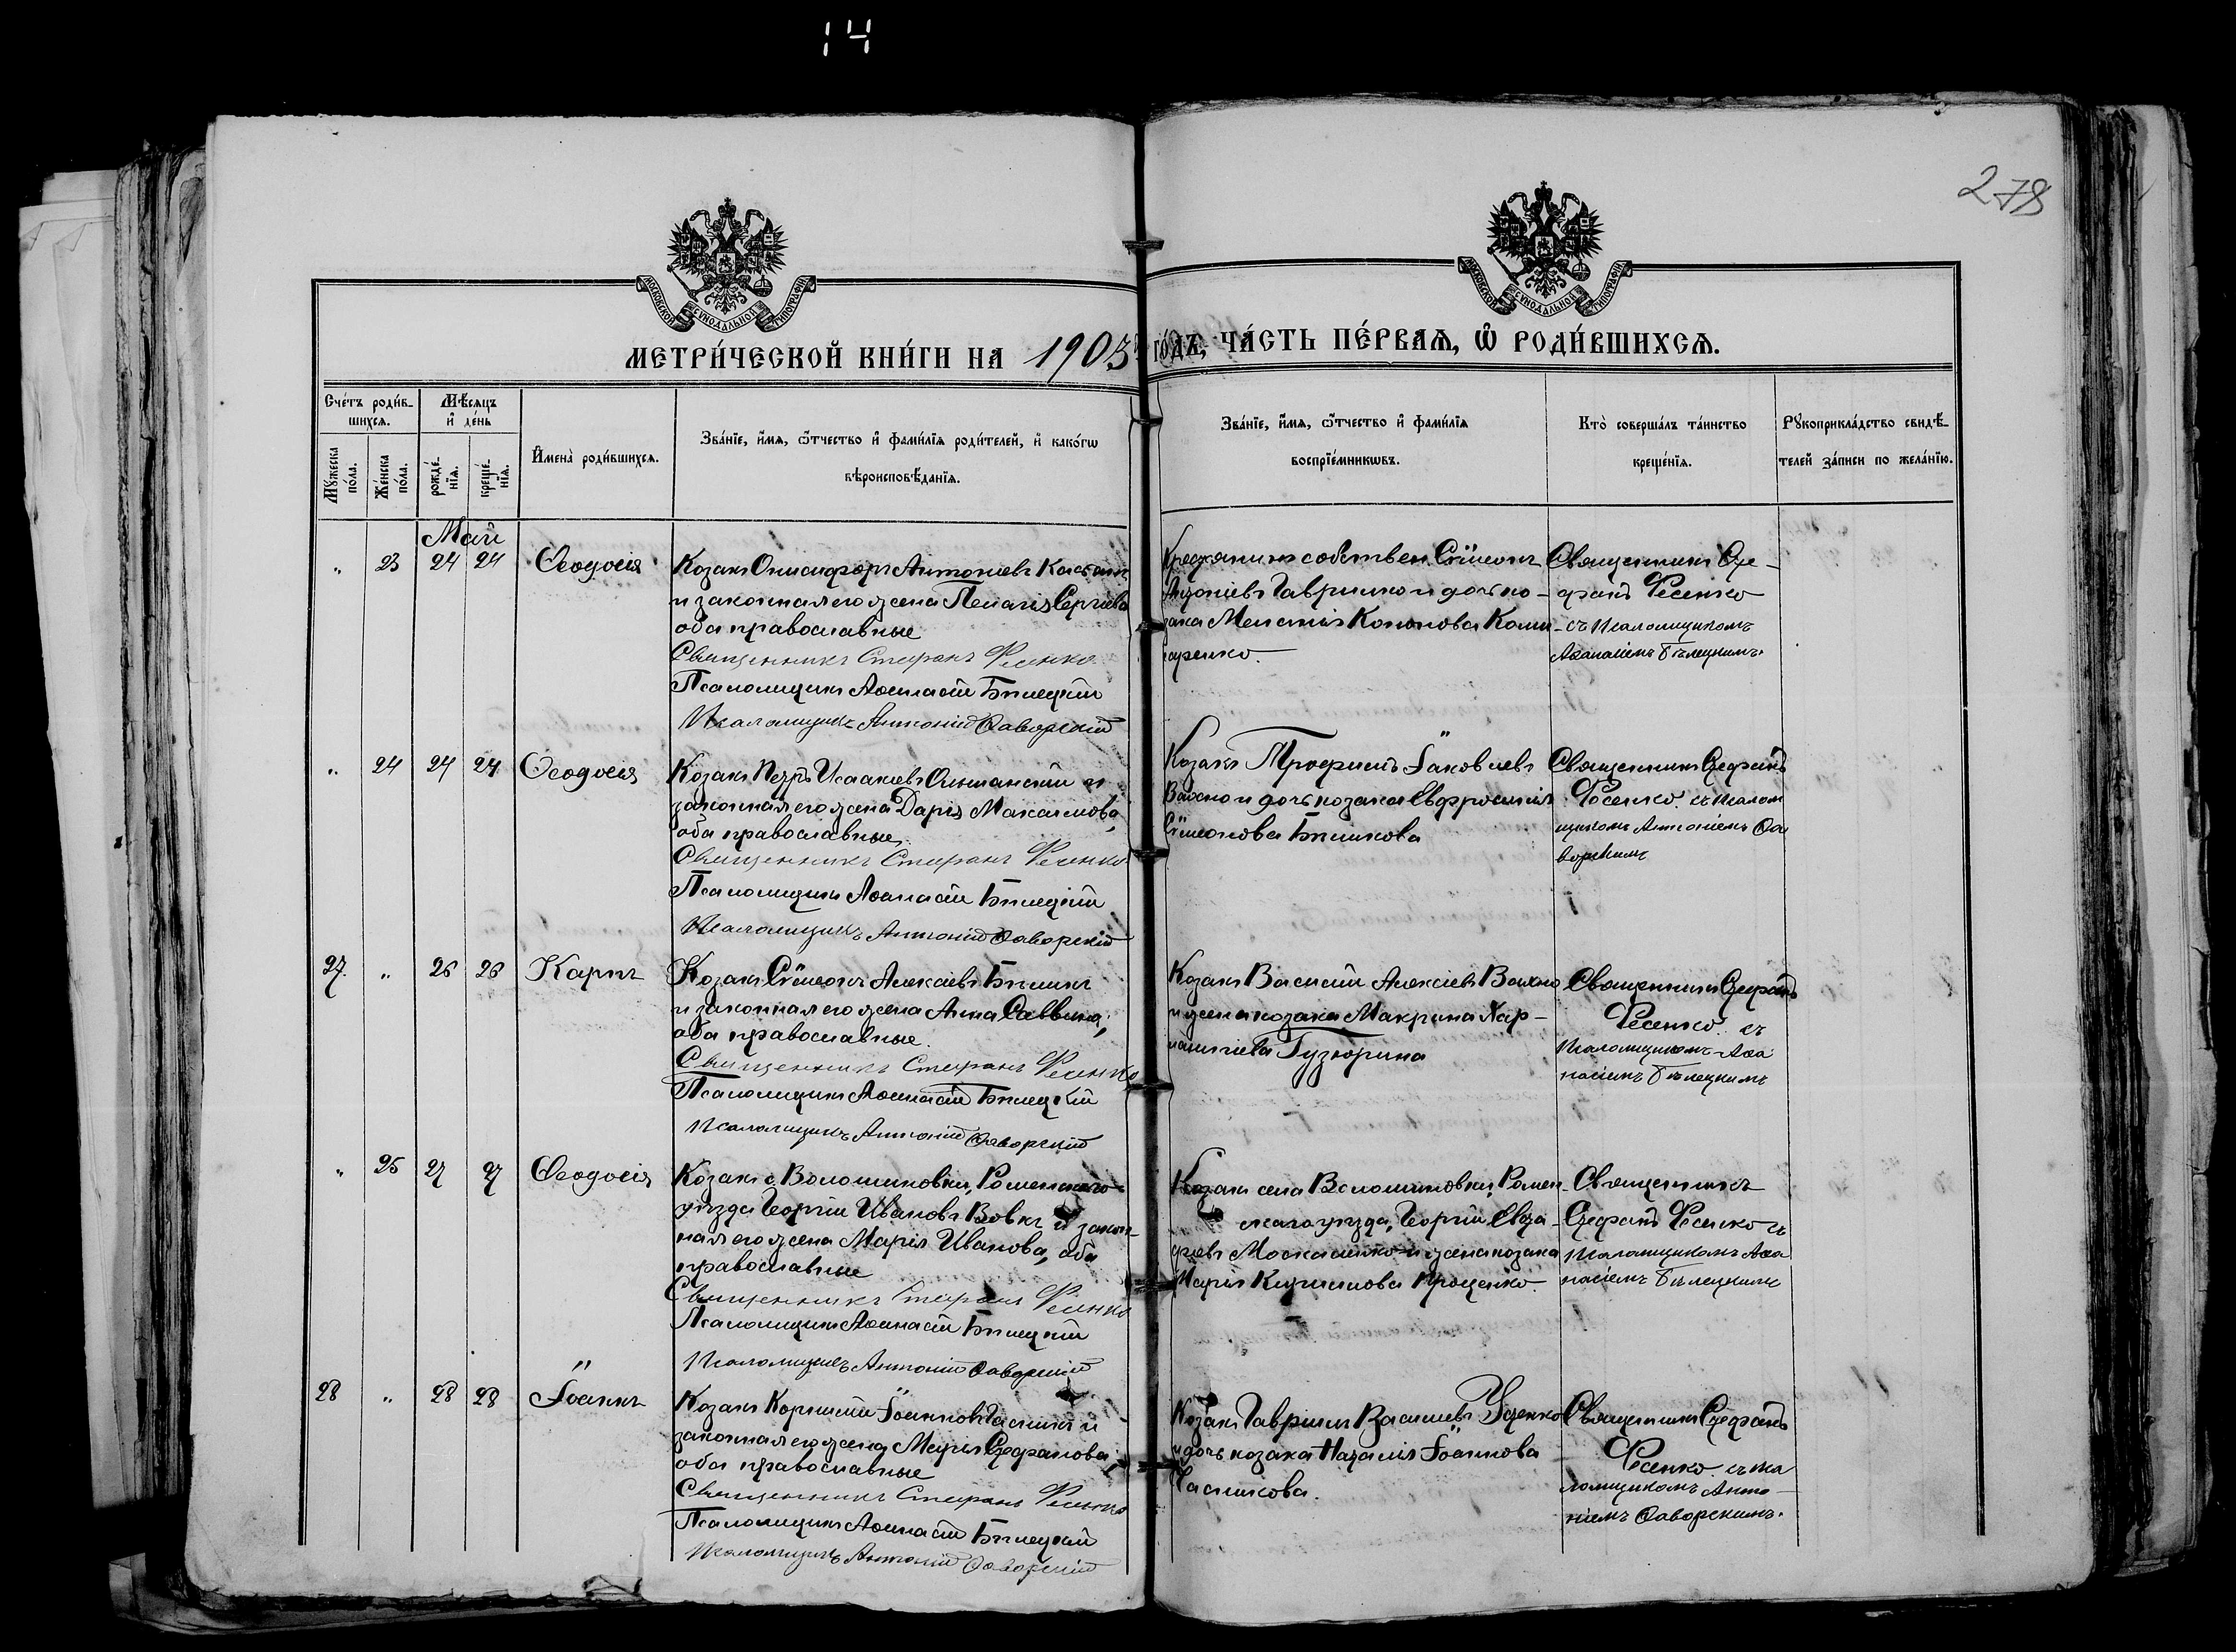 14
278
МОСКОВСКОЙ СѴНОДАЛЬНОЙ ТИПОГРАФІИ
МОСКОВСКОЙ СѴНОДАЛЬНОЙ ТИПОГРАФІИ
МЕТРИ́ЧЕСКОЙ КНИ́ГИ НА 1903 ГО́ДЪ, ЧА́СТЬ ПЕ́РВАЯ, Ѽ РОДИ́ВШИХСЯ.
Сче́тъ роди́в-
шихся.
Мꙋ́жеска по́ла.
Же́нска по́ла.
Мѣ́сяцъ и҆ де́нь
рожде́-нїя.
креще́-нїя.
И҆мена̀ роди́вшихся.
Зва́нїе, и҆́мя, ѻ҆́тчество и҆ фами́лїя роди́телей, и҆ како́гѡ
вѣроисповѣ́данїя.
Зва́нїе, и҆́мя, ѻ҆́тчество и҆ фами́лїя
воспрїе́мникѡвъ.
Кто̀ соверша́лъ та́инство
креще́нїя.
Рꙋкоприкла́дство свидѣ́-
телей за́писи по жела́нїю.
Май
„ 23 24 24 Ѳеодосія
Козакъ Онисифоръ Антоніевъ
и законная его жена Пелагія Сергіева
оба православные
Священникъ Стефанъ Фесенко
Псаломщикъ Аѳанасій Бѣлецкій
Псаломщикъ Антоній Ѳаворскій
Крестьянинъ собствен. Сѵмеонъ
Гавришко и дочь ко-
зака Меланія Кононова
Священникъ Сте-
фанъ Фесенко
съ псаломщикомъ
Аѳанасіемъ Бѣлецкимъ.
„ 24 24 24 Ѳеодосія
Козакъ Петръ Исаакіевъ Ольшанскій и
законная его жена Дарія Максимова,
оба православные.
Священникъ Стефанъ Фесенко
Псаломщикъ Аѳанасій Бѣлецкій
Псаломщикъ Антоній Ѳаворскій
Козакъ Трофимъ Іаковлевъ
и дочь козака Евфросинія
Сѵмеонова Бѣликова
Священникъ Стефанъ
Фесенко съ псалом
щикомъ Антоніемъ Ѳа
ворскимъ
27. „ 26 26 Карпъ
Козакъ Сѵмеонъ Алексіевъ Бѣликъ
и законная его жена Анна Саввина,
оба православные.
Священникъ Стефанъ Фесенко
Псаломщикъ Аѳанасій Бѣлецкій
Псаломщикъ Антоній Ѳаворскій
Козакъ Василій Алексіевъ
и жена козака Макрина Хар-
лампіева Гузюрина
Священникъ Стефанъ
Фесенко. съ
псаломщикомъ Аѳа
насіемъ Бѣлецкимъ
„ 25 27 27 Ѳеодосія
Козакъ с. Волошиновки, Роменскаго
уѣзда Георгій Ивановъ Вовкъ и закон-
ная его жена Марія Иванова, оба
православные
Священникъ Стефанъ Фесенко
Псаломщикъ Аѳанасій Бѣлецкій
Псаломщикъ Антоній Ѳаворскій
Козакъ села Волошиновки, Ромен-
скаго уѣзда, Георгій Евста-
фіевъ Москаленко и жена козака
Марія Кириллова Проценко.
Священникъ
Стефанъ Фесенко съ
псаломщикомъ Аѳа
насіемъ Бѣлецкимъ
28 „ 28 28 Іоаннъ
Козакъ Корнилій Іоанновъ Часникъ и
законная его жена Марія Стефанова
оба православные
Священникъ Стефанъ Фесенко
Псаломщикъ Аѳанасій Бѣлецкій
Псаломщикъ Антоній Ѳаворскій
Козакъ Гавріилъ Васильевъ Уценко
и дочь козака Наталія Іоаннова
Часникова.
Священникъ Стефанъ
Фесенко. съ пса
ломщикомъ Анто-
ніемъ Ѳаворскимъ.